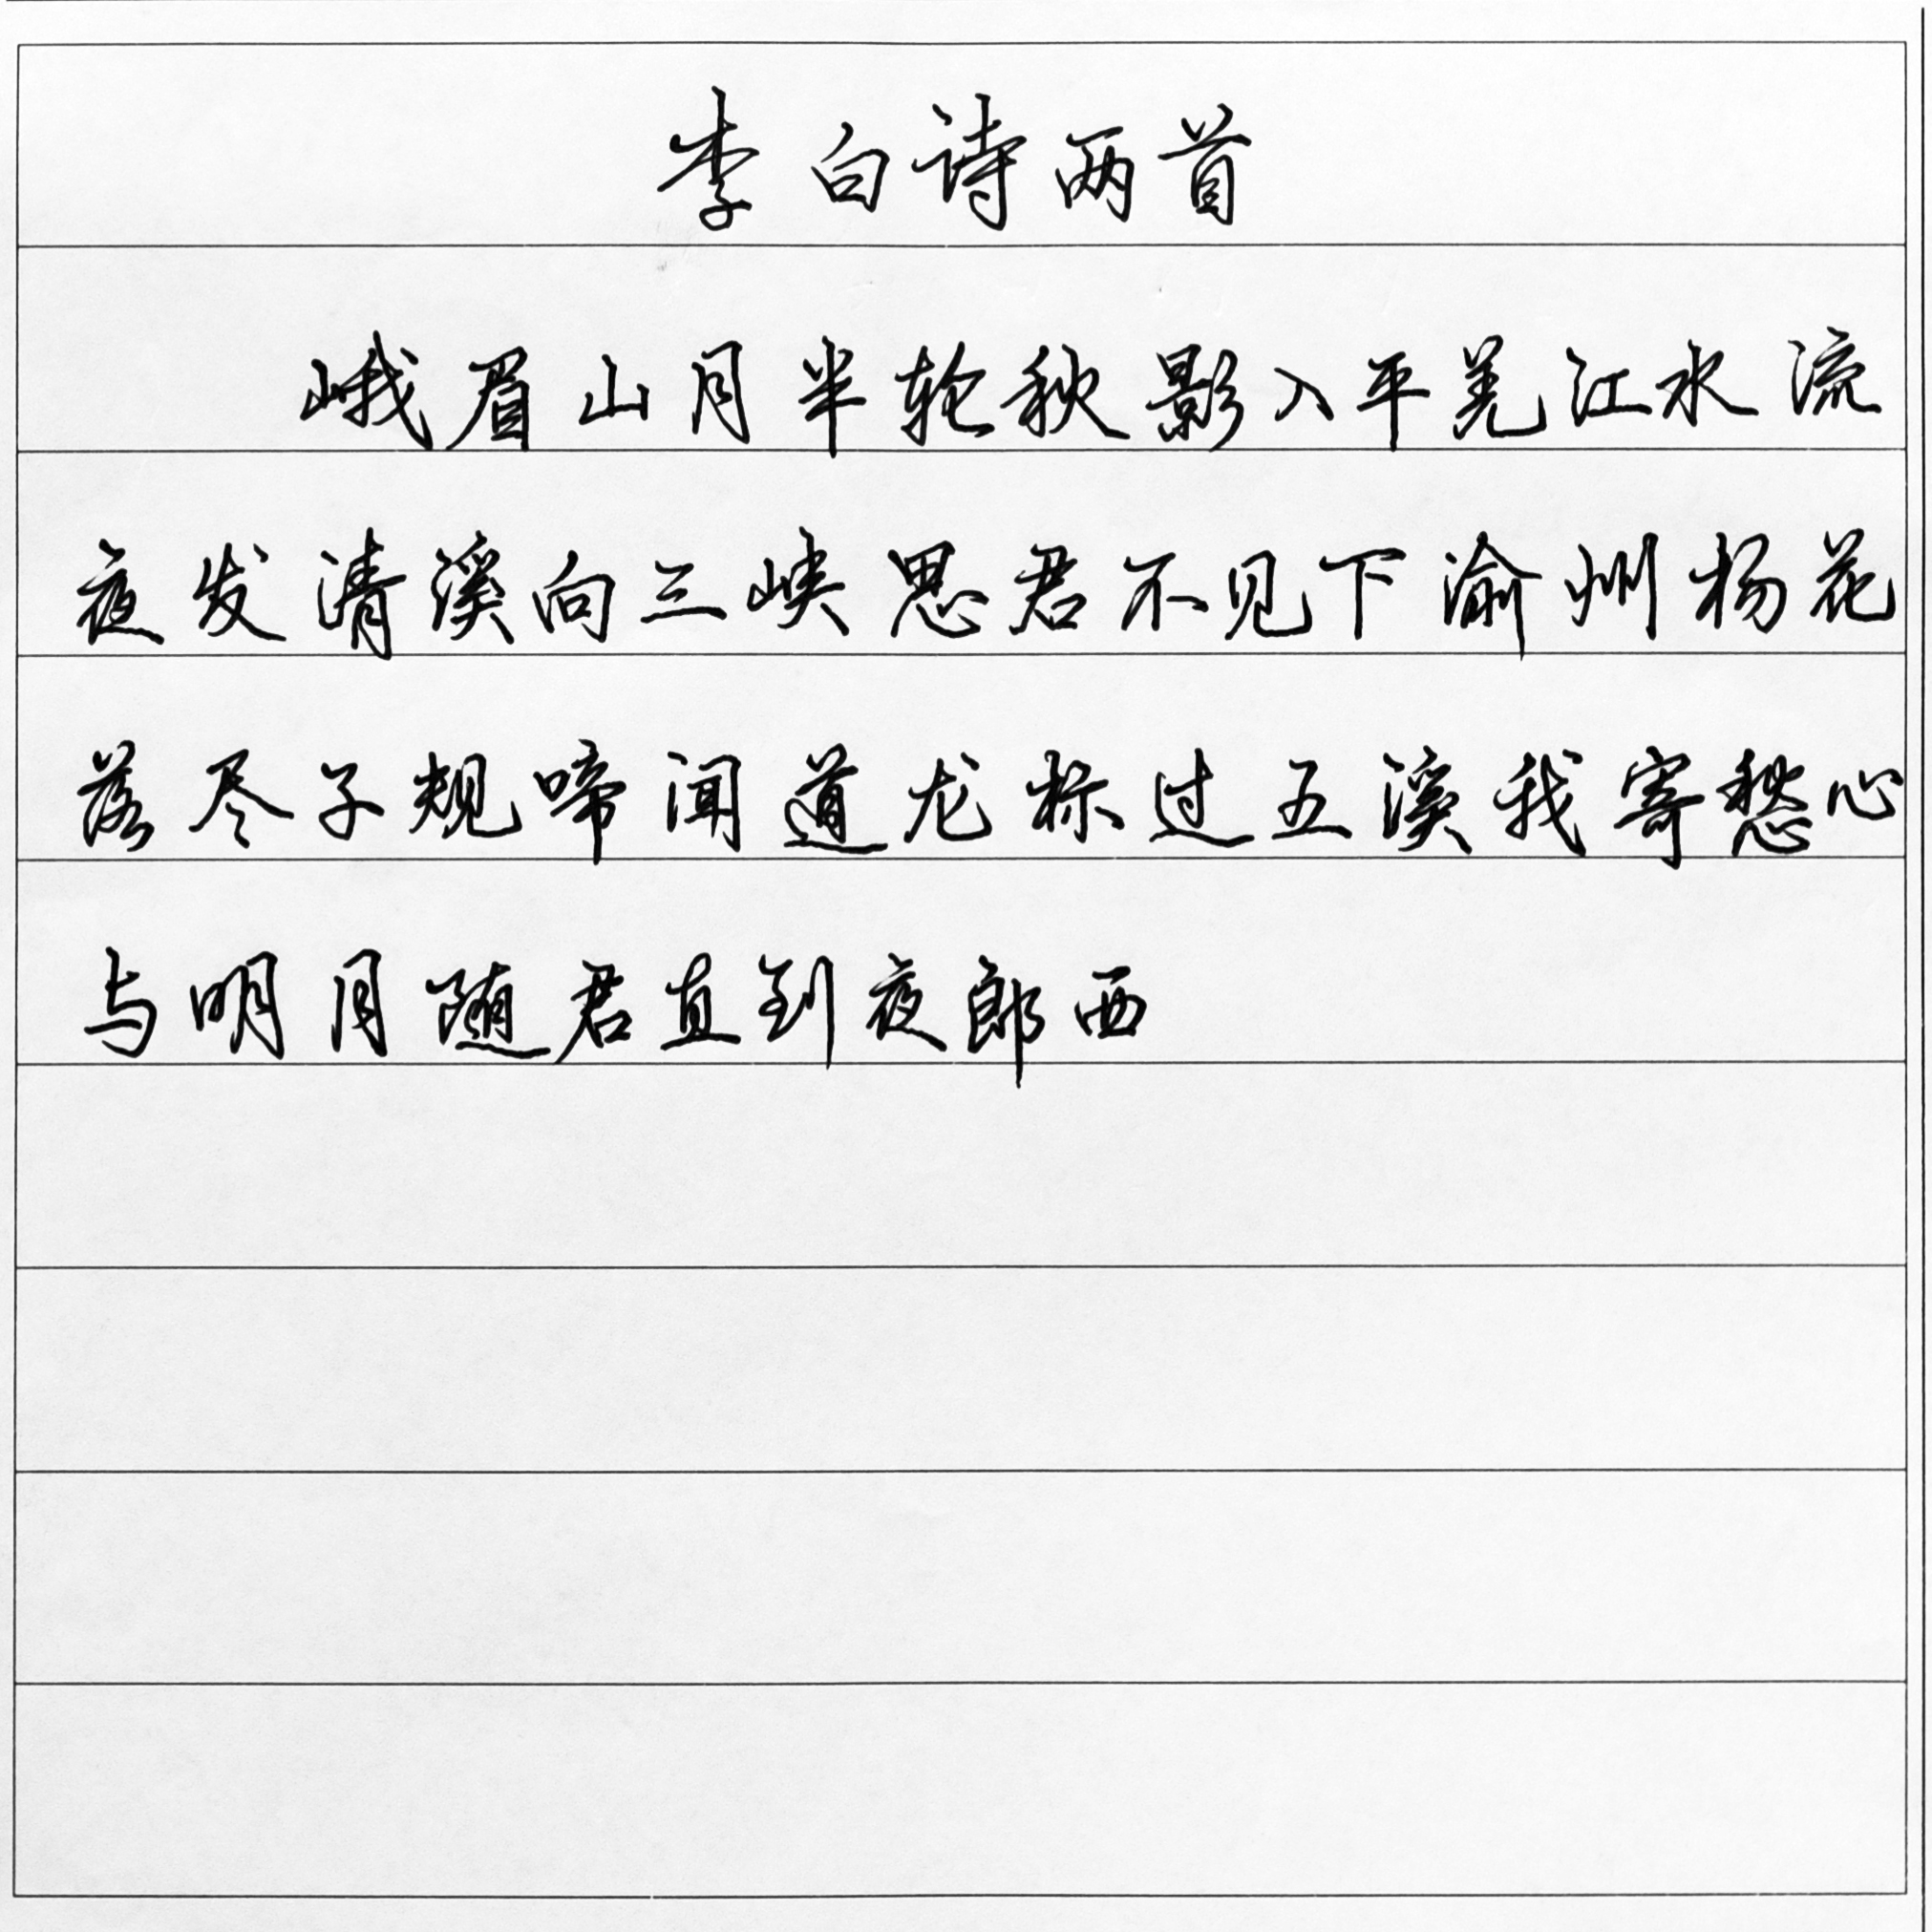 李白诗两首
峨眉山月半轮秋影入平羌江水流
夜发清溪向三峡思君不见下渝州杨花
落尽子规啼闻道龙标过五溪我寄愁心
与明月随君直到夜郎西